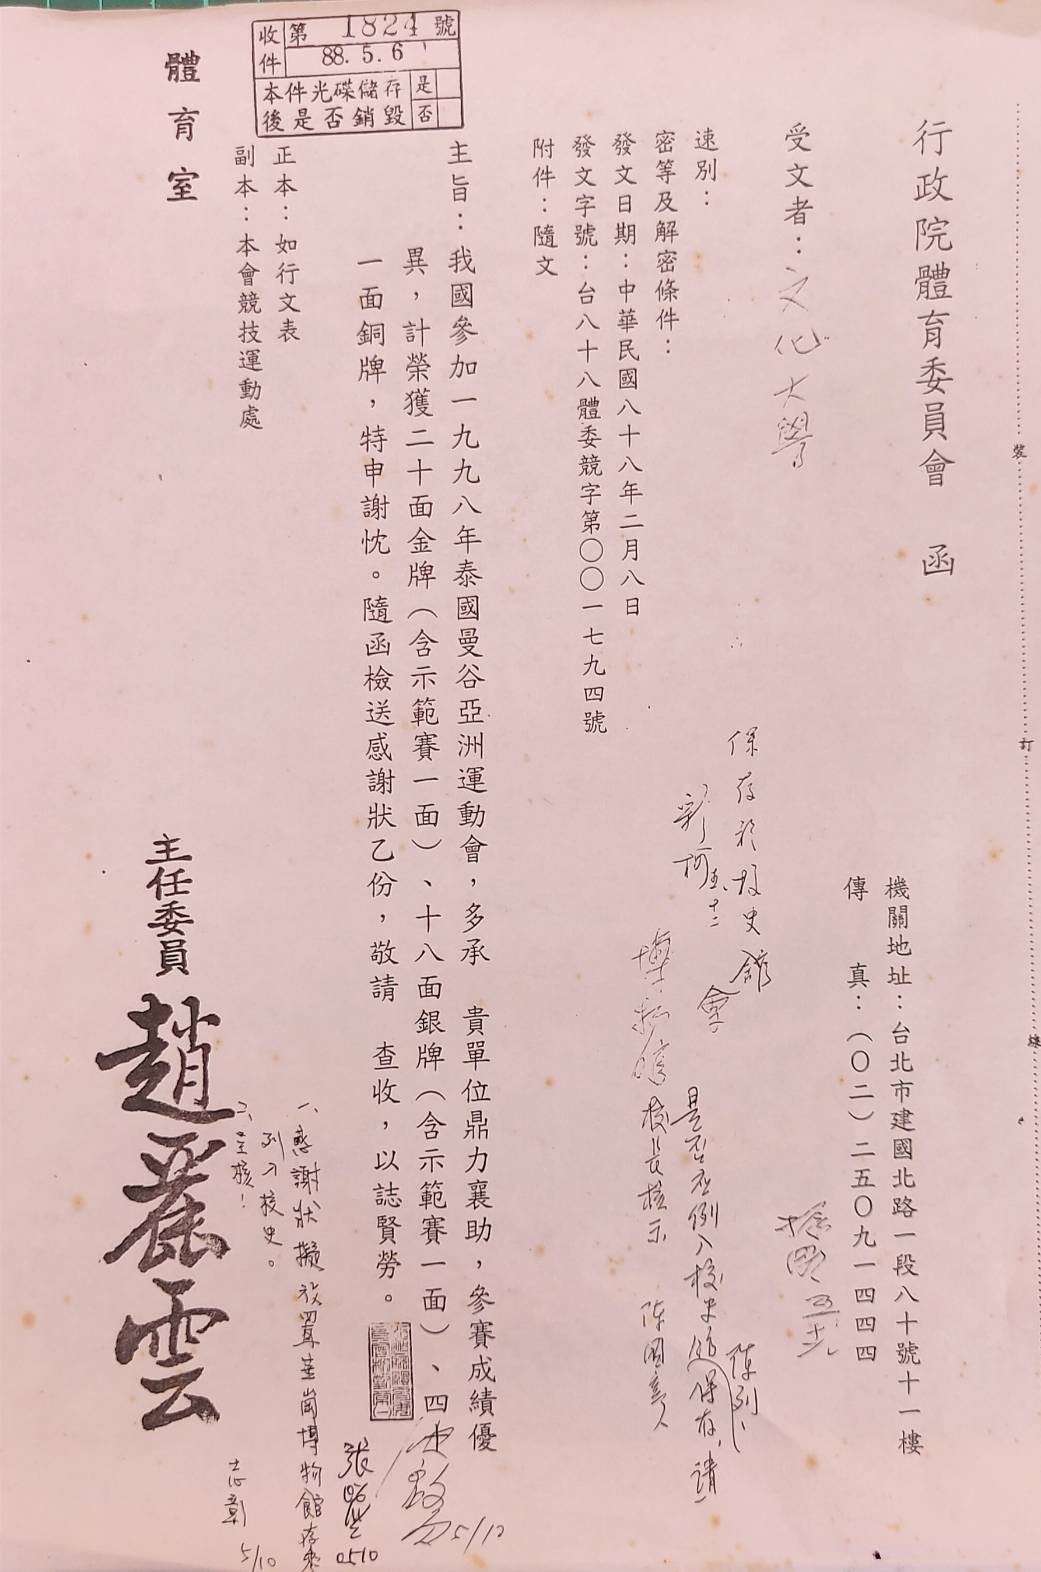 行政院體育委員會　函
機關地址：台北市建國北路一段八十號十一樓
傳　真：（〇二）二五〇九一四四四
受文者：文化大學
速別：
密等及解密條件：
發文日期：中華民國八十八年二月八日
發文字號：台八十八體委競字第〇〇一七九四號
附件：隨文
保存於校史館
會
陳列、
是否應列入校史館保存，請
校長核示
主旨：我國參加一九九八年泰國曼谷亞洲運動會，多承　貴單位鼎力襄助，參賽成績優
異，計榮獲二十面金牌（含示範賽一面）、十八面銀牌（含示範賽一面）、四
一面銅牌，特申謝忱。隨函檢送感謝狀乙份，敬請　查收，以誌賢勞。
5/10
0510
正本：如行文表
副本：本會競技運動處
收件
第 1824 號
88.5.6
本件光碟儲存後是否銷毀
是
否
體育室
主任委員
趙麗雲
一、感謝狀擬放置華岡博物館存
列入校史。
二、呈核！
志彰 5/10
裝
訂
線